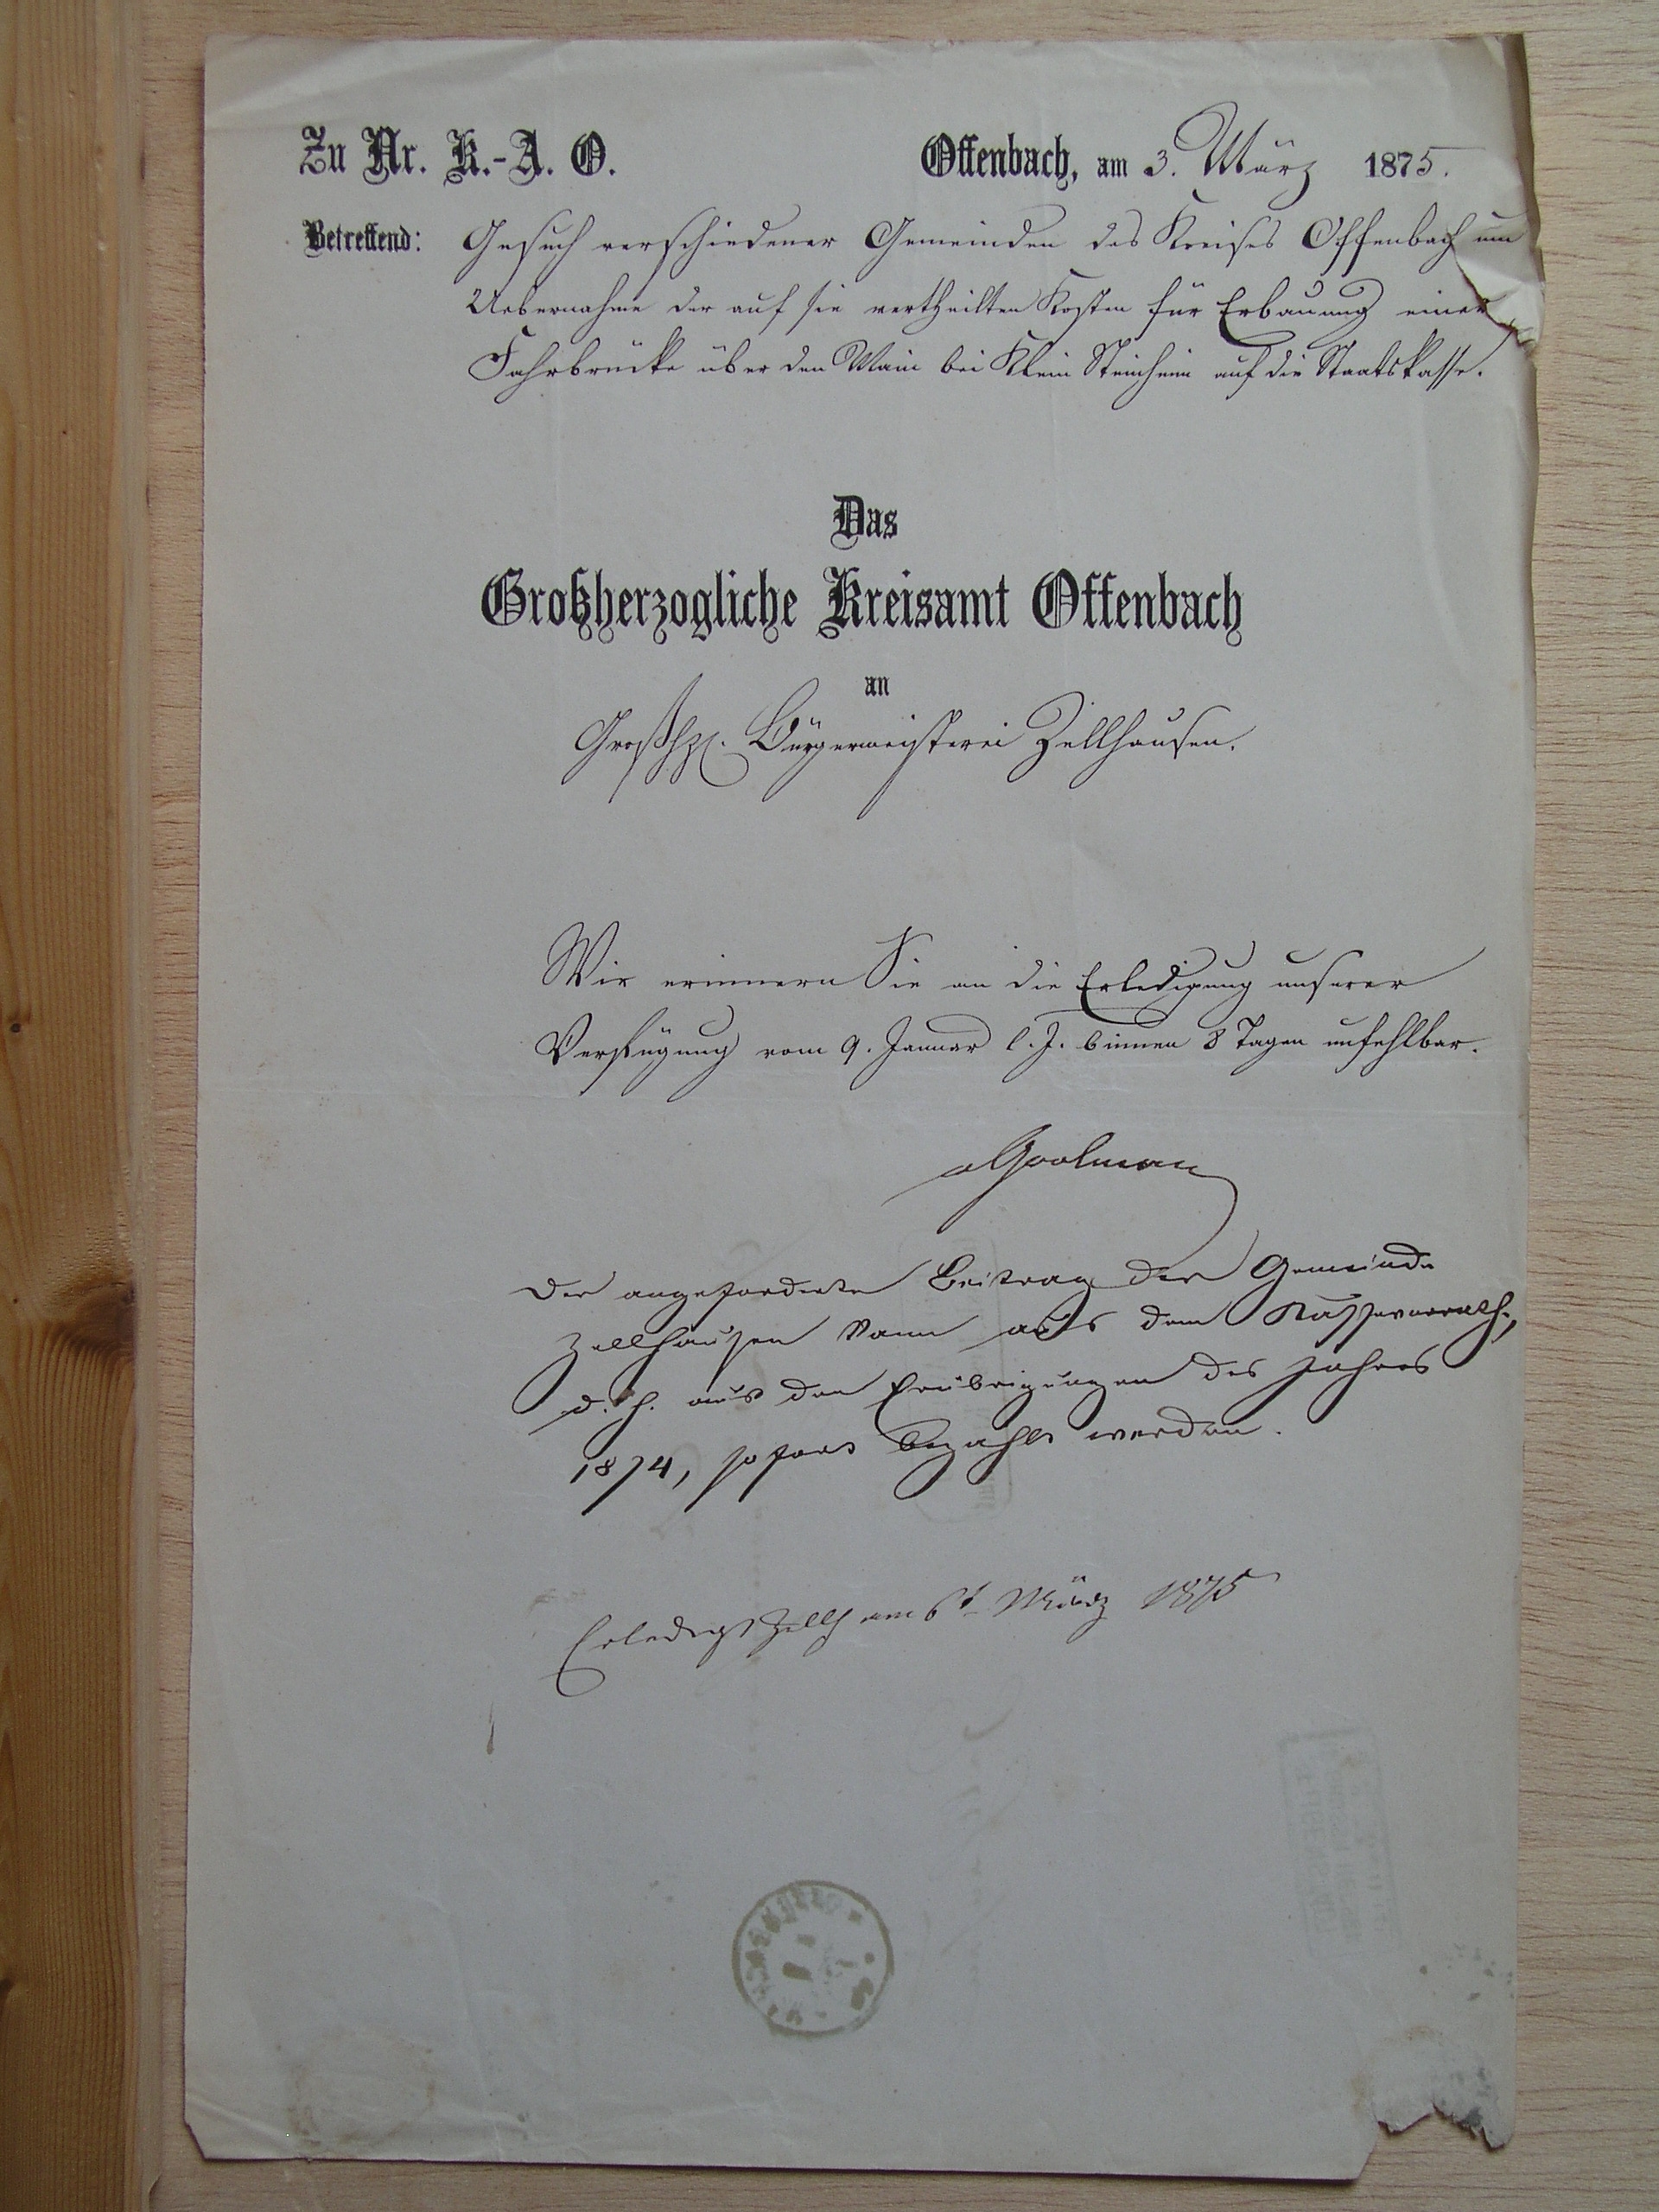 Zu Nr. K.-A. O.
Offenbach, am 3. März 1875.
Betreffend: Gesuch verschiedener Gemeinden des Kreises Offenbach um
Uebernahme der auf sie vertheilten Kosten für Erbauung einer
Fahrbrücke über den Main bei Klein Steinheim auf die Staatskasse.
Das
Großherzogliche Kreisamt Offenbach
an
Großhzl. Bürgermeisterei Zellhausen.
Wir erinnern Sie an die Erledigung unserer
Verfügung vom 9. Januar l. J. binnen 8 Tagen unfehlbar.
Der angeforderte Beitrag der Gemeinde
Zellhausen kann aus dem Kassevorrath,
d. h. aus den Erübrigungen des Jahres
1874, sofort bezahlt werden.
Erledigt Zellh am 6t März 1875